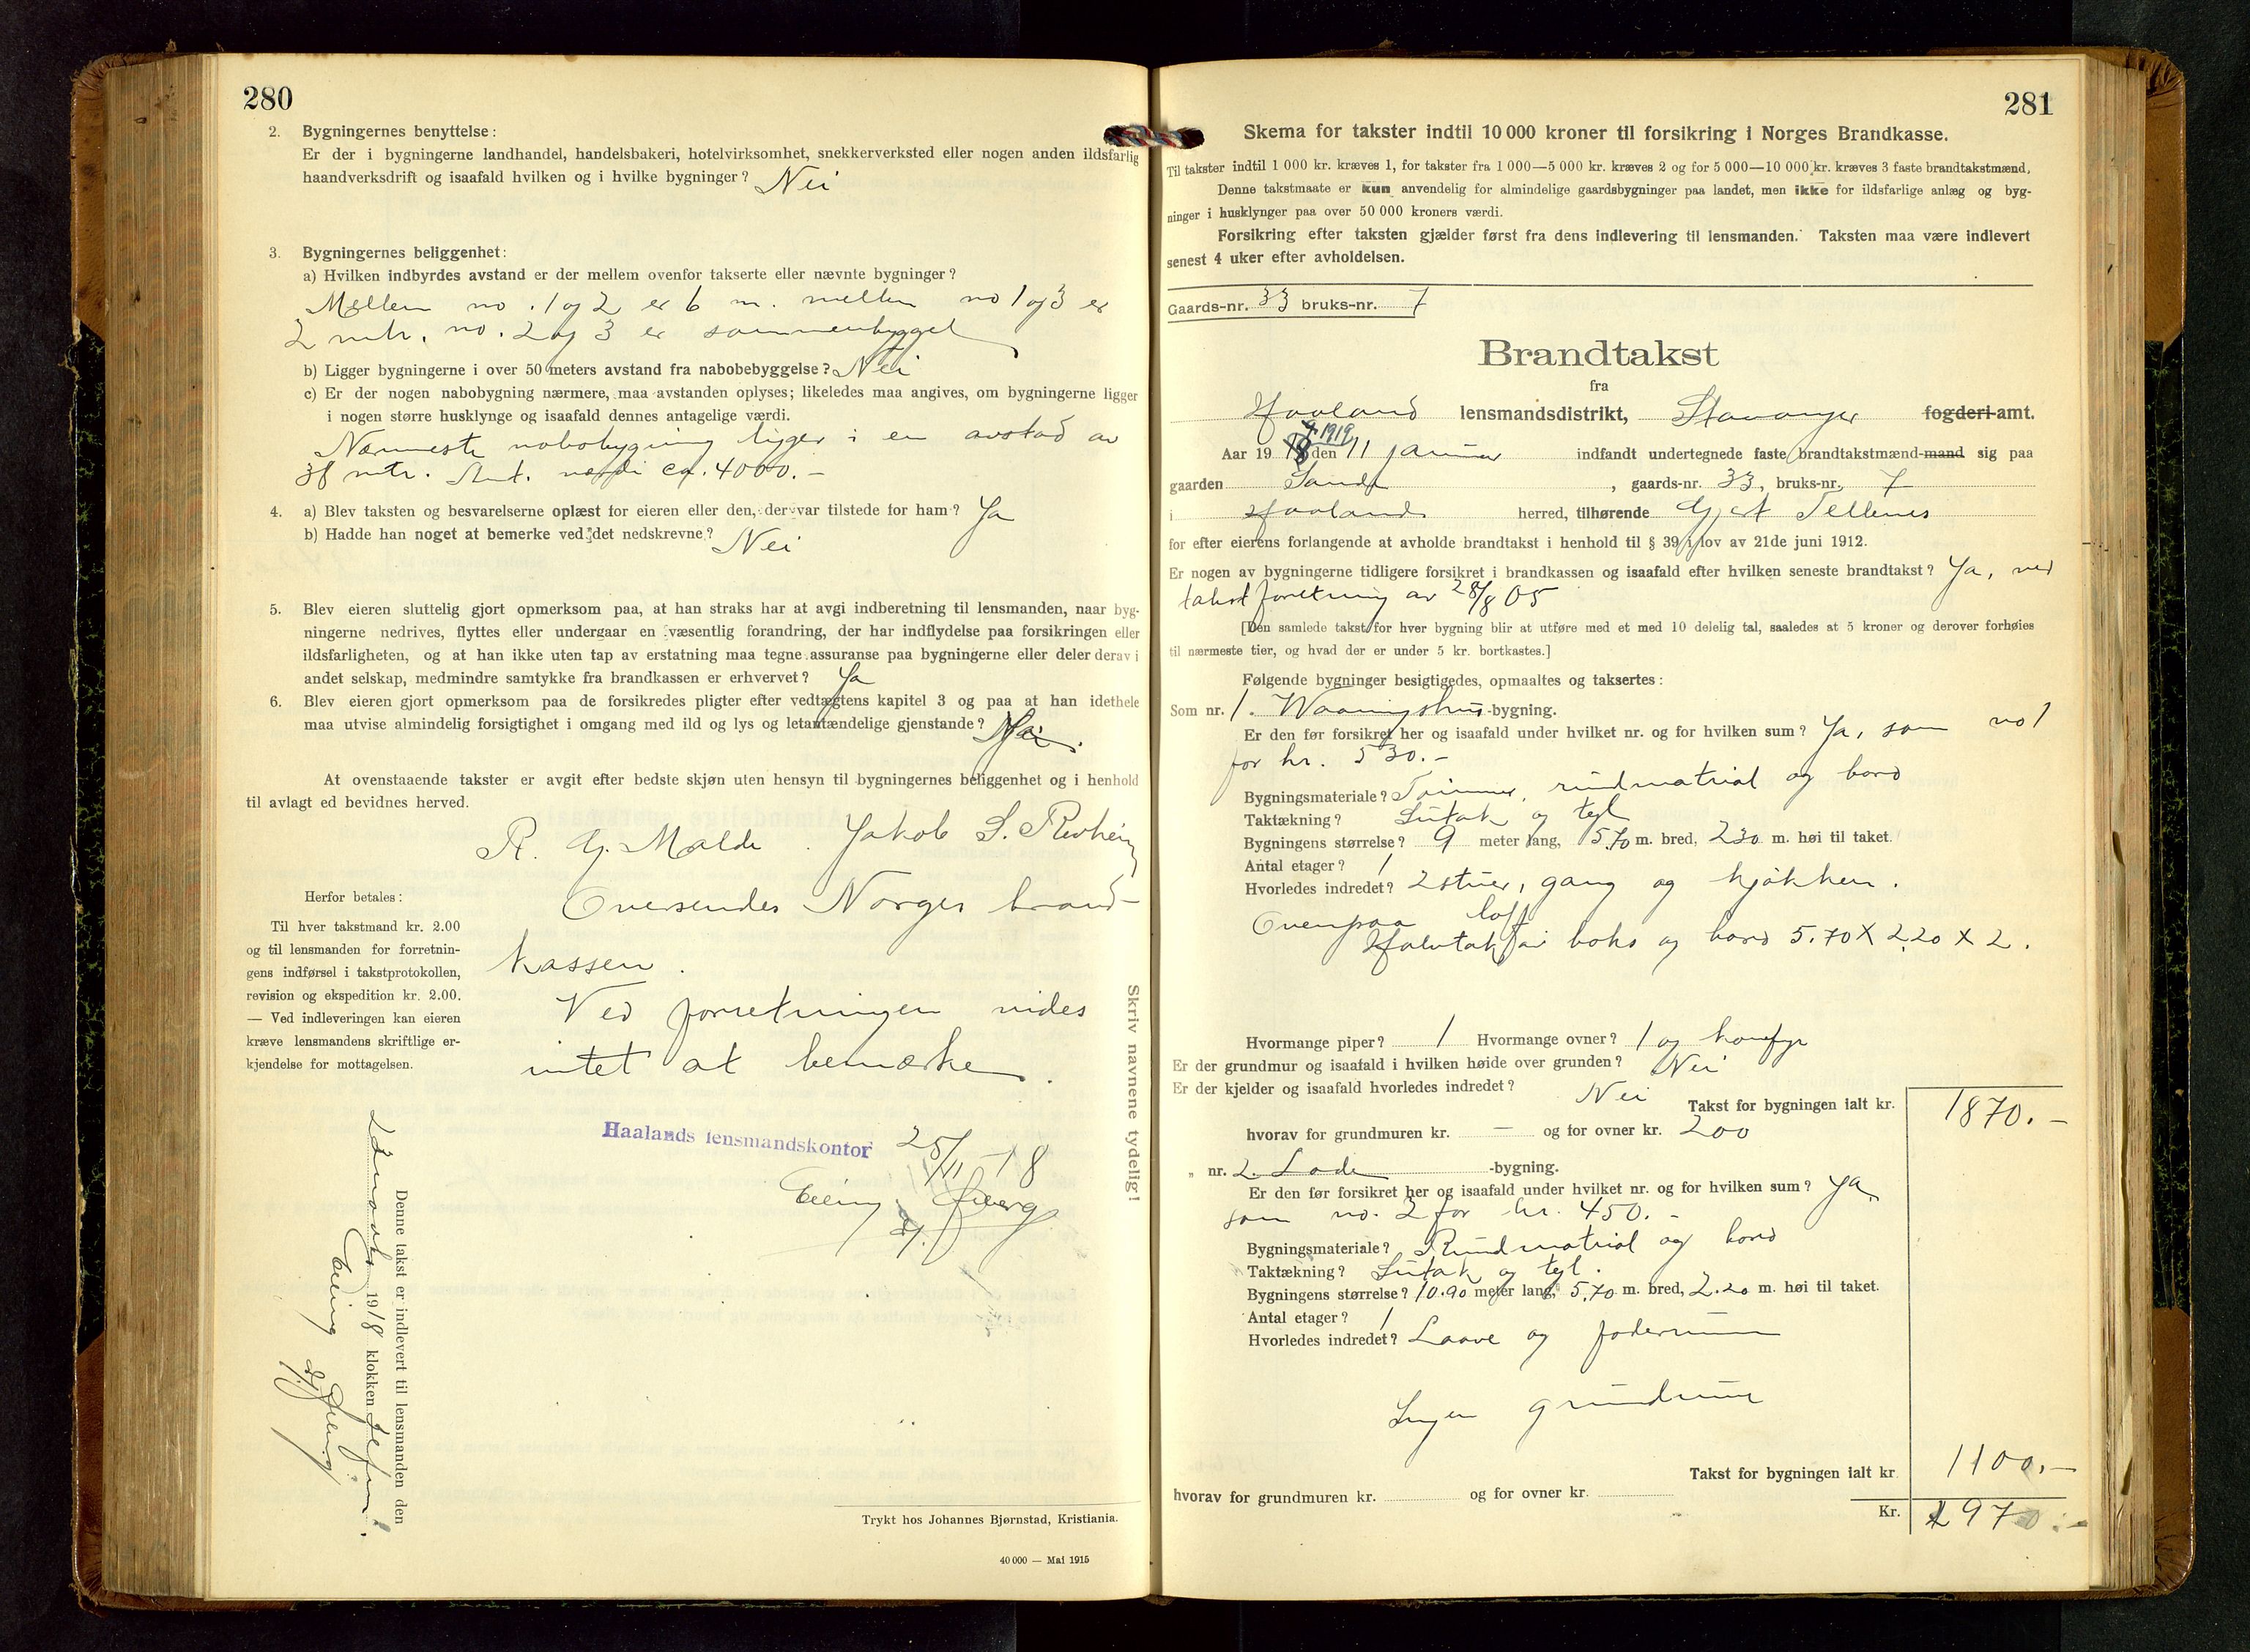 280
2. Bygningernes benyttelse:
Er der i bygningerne landhandel, handelsbakeri, hotelvirksomhet, snekkerverksted eller nogen anden ildsfarlig
haandverksdrift og isaafald hvilken og i hvilke bygninger? Nei
3. Bygningernes beliggenhet:
a) Hvilken indbyrdes avstand er der mellem ovenfor takserte eller nævnte bygninger?
Mellem no. 1 og 2 er 6 m. mellem no 1 og 3 er
2 mtr. no. 2 og 3 er sammenbygget
b) Ligger bygningerne i over 50 meters avstand fra nabobebyggelse? Nei
c) Er der nogen nabobygning nærmere, maa avstanden oplyses; likeledes maa angives, om bygningerne ligger
i nogen større husklynge og isaafald dennes antagelige værdi.
Nærmeste nabobygning ligger i en avstad av
38 mtr. Ant. værdi ca. 4000.-
4. a) Blev taksten og besvarelserne oplæst for eieren eller den, der var tilstede for ham? Ja
b) Hadde han noget at bemerke ved det nedskrevne? Nei
5. Blev eieren sluttelig gjort opmerksom paa, at han straks har at avgi indberetning til lensmanden, naar byg-
ningerne nedrives, flyttes eller undergaar en væsentlig forandring, der har indflydelse paa forsikringen eller
ildsfarligheten, og at han ikke uten tap av erstatning maa tegne assuranse paa bygningerne eller deler derav i
andet selskap, medmindre samtykke fra brandkassen er erhvervet? Ja
6. Blev eieren gjort opmerksom paa de forsikredes pligter efter vedtægtens kapitel 3 og paa at han idethele
maa utvise almindelig forsigtighet i omgang med ild og lys og letantændelige gjenstande? Ja.
At ovenstaaende takster er avgit efter bedste skjøn uten hensyn til bygningernes beliggenhet og i henhold
til avlagt ed bevidnes herved.
R. G. Malde. Jakob S. Revheim
Herfor betales:
Til hver takstmand kr. 2.00
og til lensmanden for forretnin-
gens indførsel i takstprotokollen,
revision og ekspedition kr. 2.00.
— Ved indleveringen kan eieren
kræve lensmandens skriftlige er-
kjendelse for mottagelsen.
Oversendes Norges brand-
kassen.
Ved forretningen vides
intet at bemærke.
Haalands lensmandskontor 25/11-18
Skriv navnene tydelig!
Denne takst er indlevert til lensmanden den
1918 klokken
Trykt hos Johannes Bjørnstad, Kristiania.
40 000 — Mai 1915
281
Skema for takster indtil 10 000 kroner til forsikring i Norges Brandkasse.
Til takster indtil 1 000 kr. kræves 1, for takster fra 1 000—5 000 kr. kræves 2 og for 5 000—10 000 kr. kræves 3 faste brandtakstmænd.
Denne takstmaate er kun anvendelig for almindelige gaardsbygninger paa landet, men ikke for ildsfarlige anlæg og byg-
ninger i husklynger paa over 50 000 kroners værdi.
Forsikring efter taksten gjælder først fra dens indlevering til lensmanden. Taksten maa være indlevert
senest 4 uker efter avholdelsen.
Gaards-nr. 33 bruks-nr. 7
Brandtakst
fra
Haaland lensmandsdistrikt, Stavanger fogderi-amt.
1919
Aar 19 18 den 11 januar indfandt undertegnede faste brandtakstmænd-mand sig paa
gaarden Sande, gaards-nr. 33, bruks-nr. 7
i Haaland herred, tilhørende Gjert Tellenes
for efter eierens forlangende at avholde brandtakst i henhold til § 39 i lov av 21de juni 1912.
Er nogen av bygningerne tidligere forsikret i brandkassen og isaafald efter hvilken seneste brandtakst? Ja, ved
takstforretning av 28/8 05
[Den samlede takst for hver bygning blir at utføre med et med 10 delelig tal, saaledes at 5 kroner og derover forhøies
til nærmeste tier, og hvad der er under 5 kr. bortkastes.]
Følgende bygninger besigtigedes, opmaaltes og taksertes:
Som nr. 1. Vaaningshus-bygning.
Er den før forsikret her og isaafald under hvilket nr. og for hvilken sum? Ja, som no 1
for kr. 530.-
Bygningsmateriale? Tømmer, rundmatrial og bord
Taktækning? Sutak og tegl
Bygningens størrelse? 9 meter lang, 5.70 m. bred, 2.30 m. høi til taket.
Antal etager? 1
Hvorledes indredet? 2 stuer, gang og kjøkken.
Ovenpaa loft
Halvtak for boks og bord 5.70 X 2.20 X 2.
Hvormange piper? 1 Hvormange ovner? 1 og komfyr
Er der grundmur og isaafald i hvilken høide over grunden? Nei
Er der kjelder og isaafald hvorledes indredet? Nei
Takst for bygningen ialt kr. 1870.-
hvorav for grundmuren kr. — og for ovner kr. 200
„ nr. 2. Lade-bygning.
Er den før forsikret her og isaafald under hvilket nr. og for hvilken sum? Ja
som no. 2 for kr. 450.-
Bygningsmateriale? Rundmatrial og bord
Taktækning? Sutak og tegl.
Bygningens størrelse? 10.90 meter lang, 5.70 m. bred, 2.20 m. høi til taket.
Antal etager? 1
Hvorledes indredet? Laave og foderrum
Ingen grundmur
Takst for bygningen ialt kr. 1100.-
hvorav for grundmuren kr. og for ovner kr.
Kr. 2970.-